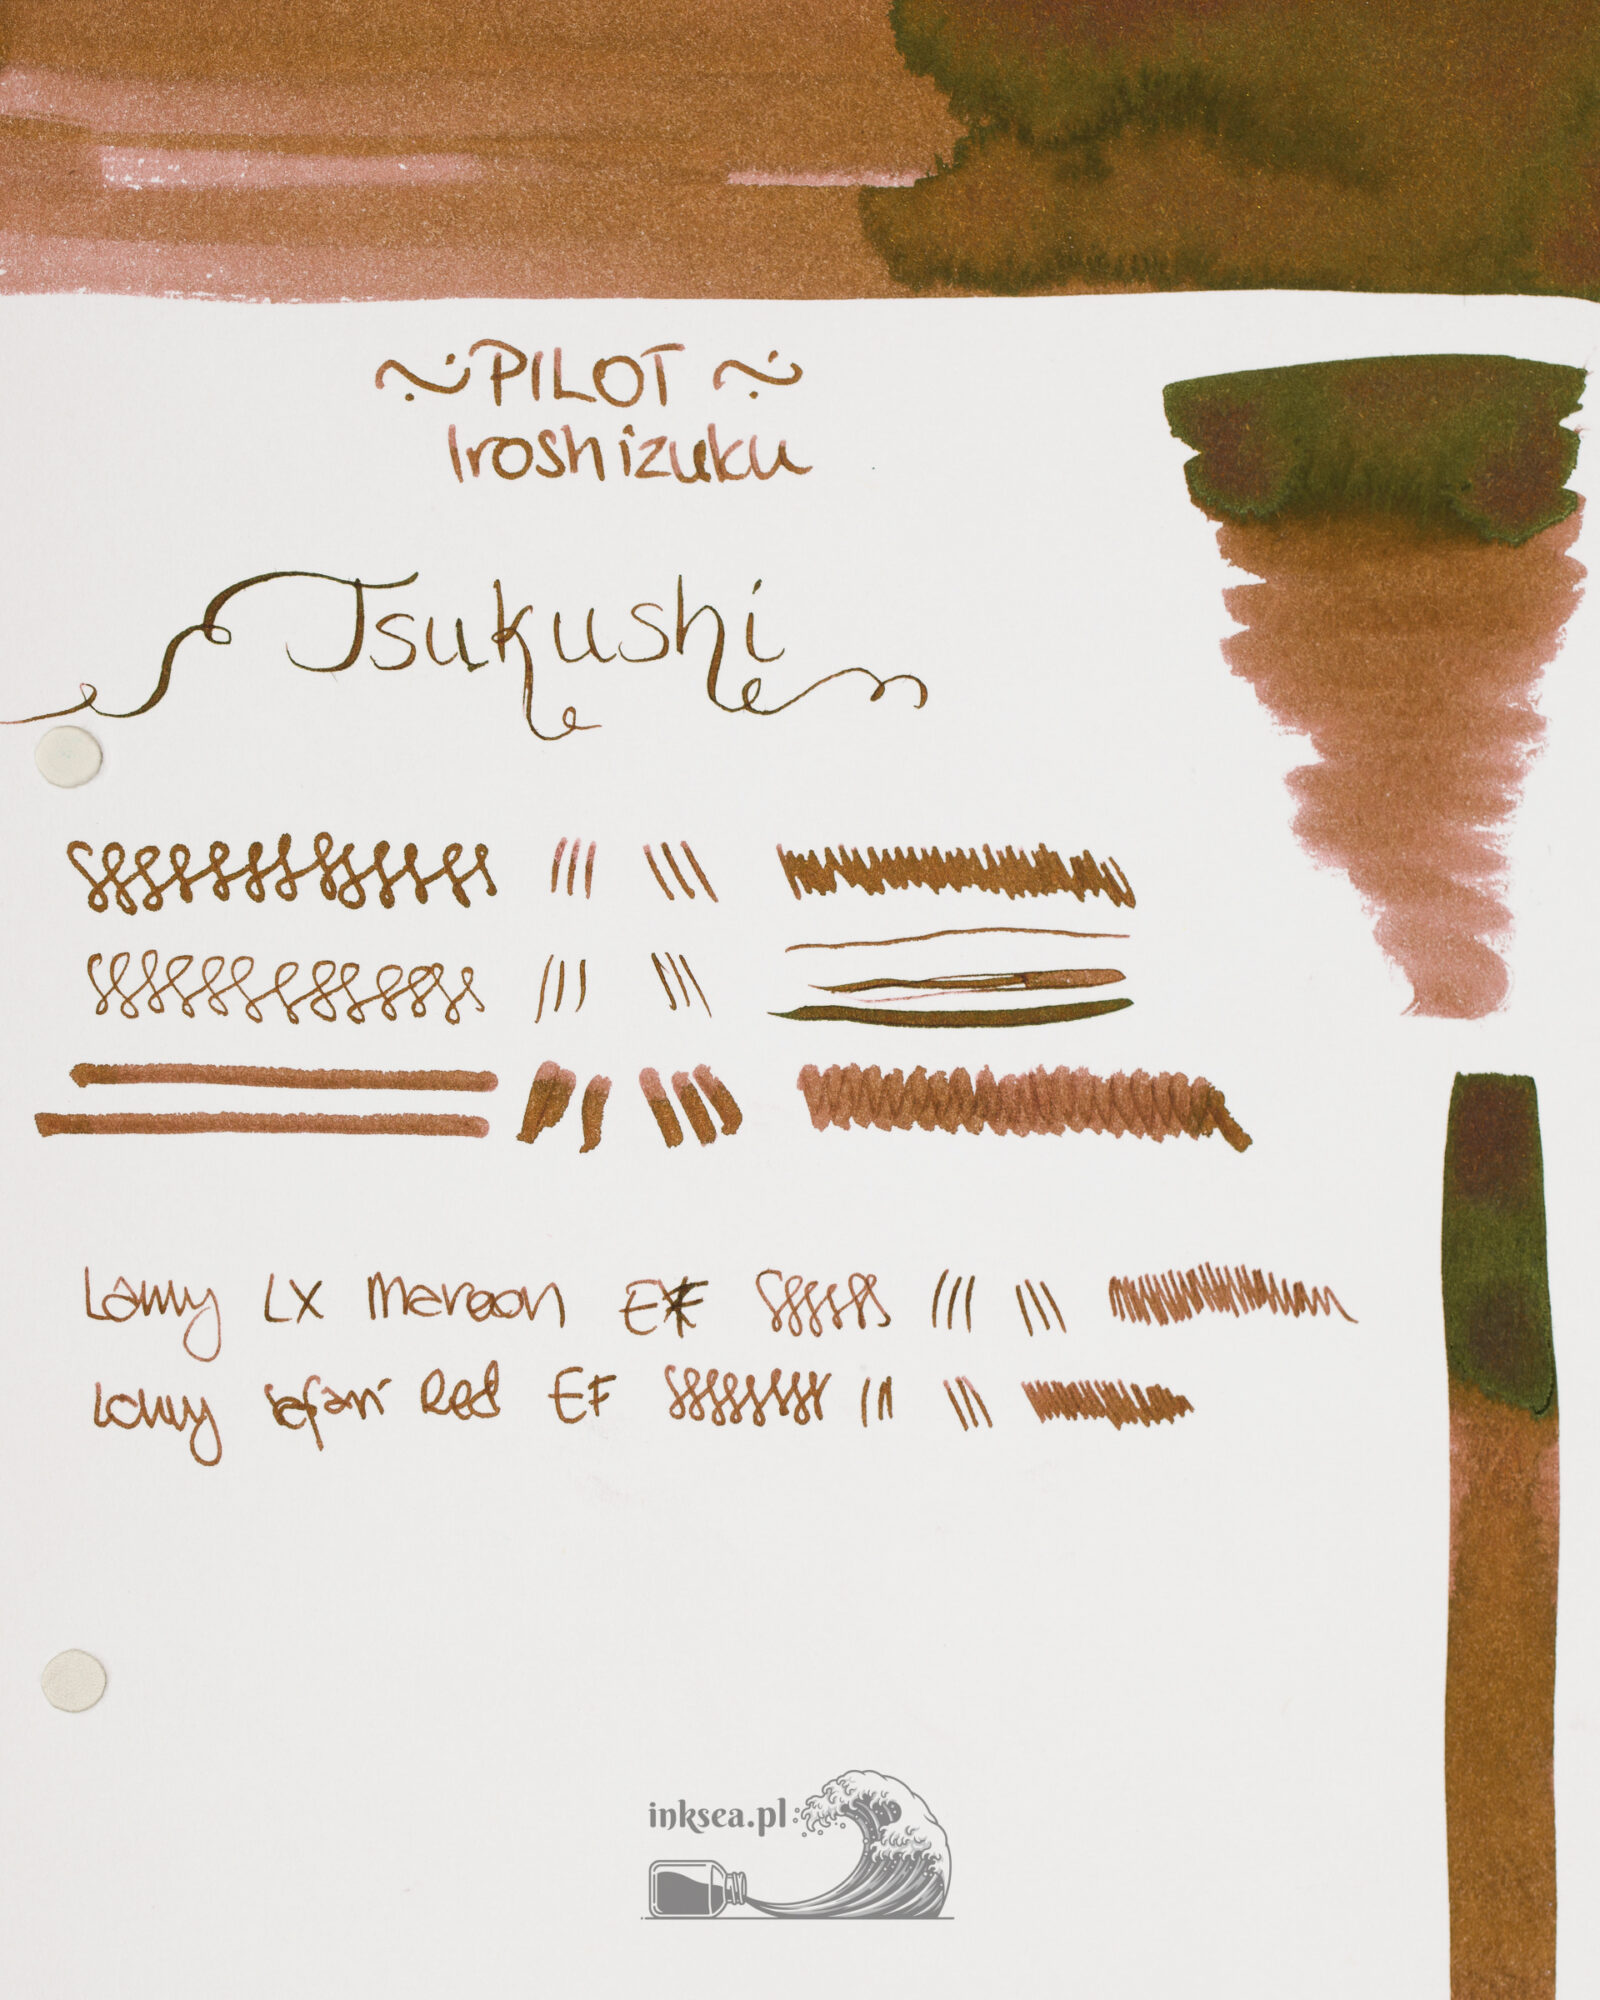 ~ PILOT ~
Iroshizuku
Tsukushi
Lamy LX Maroon EF
Lamy safari Red EF
inksea.pl